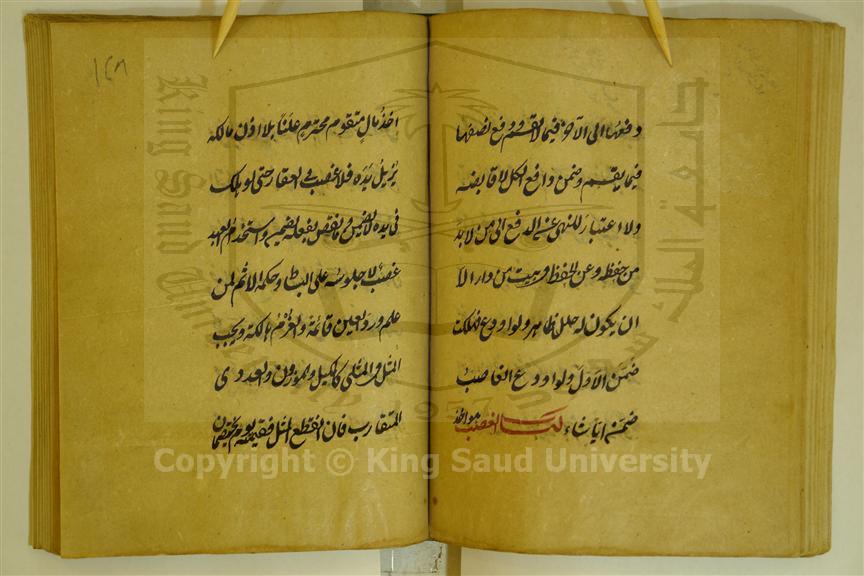 دفعها الى الآخر فيما لا يقسم ودفع نصفها
فيما يقسم وضمن دافع الكل لا قابضه
ولا اعتبار للنهى عن الدفع الى من لا بد
من حفظه وعن الحفظ فى بيت من دار الا
ان يكون له خلل ظاهر ولو اودع فهلكت
ضمن الاول ولو اودع الغاصب
ضمن ايا شاء كتاب الغصب هو اخذ
١٤٨
اخذ مال متقوم محترم علنا بلا اذن مالكه
يزيل يده فلا غصب فى العقار حتى لو هلك
فى يده لا يضمن وما نقص بفعله يضمن واستخدام العبد
غصب لا جلوسه على البساط وحكمه الاثم لمن
علم ورد العين قائمة والغرم هالكة ويجب
المثل فى المثلى كالكيل والموزون والعددى
المتقارب فان انقطع المثل فقيمته يوم يختصمان
King Saud University
جامعة الملك سعود
1957
Copyright © King Saud University